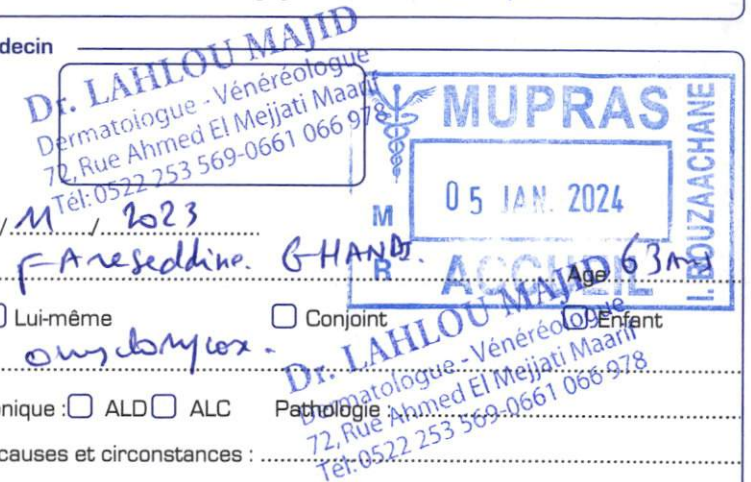 decin
Dr. LAHLOU MAJID
Dermatologue - Vénéréologue
72, Rue Ahmed El Mejjati Maarif
Tél: 0522 253 569-0661 066 978
MUPRAS
05 JAN. 2024
ACCUEIL
M
R
I. BOUZAACHANE
/ 11 / 2023
GHANDI. Age 63 ans
Lui-même Conjoint Enfant
Dr. LAHLOU MAJID
Dermatologue - Vénéréologue
72, Rue Ahmed El Mejjati Maarif
Tél: 0522 253 569-0661 066 978
nique : ALD ALC Pathologie :
causes et circonstances :